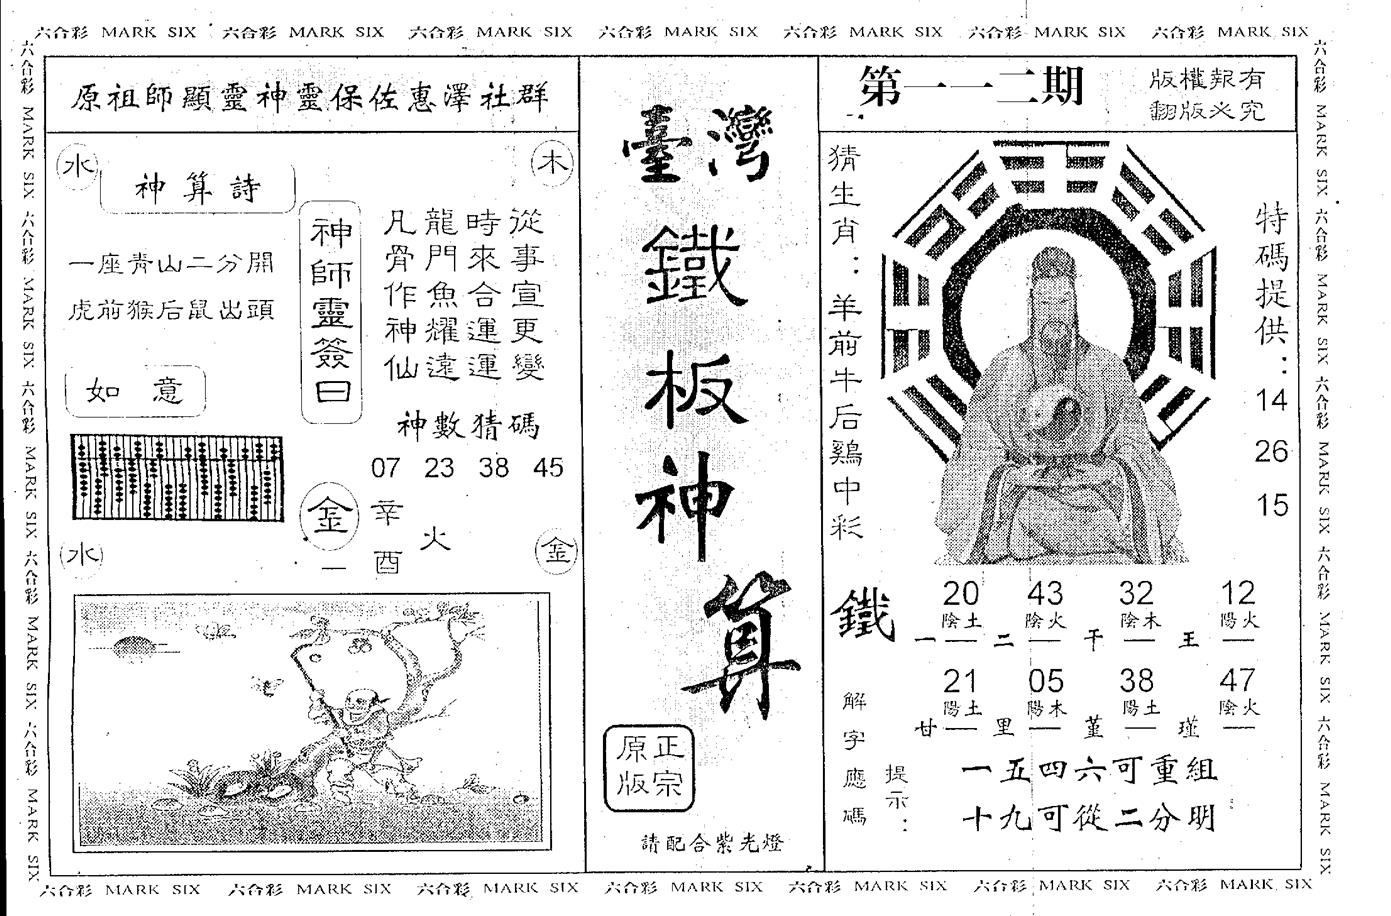 六合彩 MARK SIX 六合彩 MARK SIX 六合彩 MARK SIX 六合彩 MARK SIX 六合彩 MARK SIX 六合彩 MARK SIX 六合彩 MARK SIX
六合彩 MARK SIX 六合彩 MARK SIX 六合彩 MARK SIX 六合彩 MARK SIX 六合彩 MARK SIX
原祖師顯靈神靈保佐惠澤社群
水
神算詩
木
一座青山二分開
虎前猴后鼠出頭
如 意
神師靈簽曰
從事宣更變
時來合運運
龍門魚耀遠
凡骨作神仙
神數猜碼
07 23 38 45
金
一
辛酉
火
水
金
臺灣
鐵板神算
正宗
原版
請配合紫光燈
第一一二期
版權報有
翻版必究
猜生肖：羊前牛后鷄中彩
特碼提供：
14
26
15
鐵
20 43 32 12
陰土 陰火 陰木 陽火
一 — 二 — 干 — 王 —
21 05 38 47
陽土 陽木 陽土 陰火
廿 — 里 — 堇 — 瑾 —
解字應碼
提示：
一五四六可重組
十九可從二分明
六合彩 MARK SIX 六合彩 MARK SIX 六合彩 MARK SIX 六合彩 MARK SIX 六合彩 MARK SIX
六合彩 MARK SIX 六合彩 MARK SIX 六合彩 MARK SIX 六合彩 MARK SIX 六合彩 MARK SIX 六合彩 MARK SIX 六合彩 MARK SIX